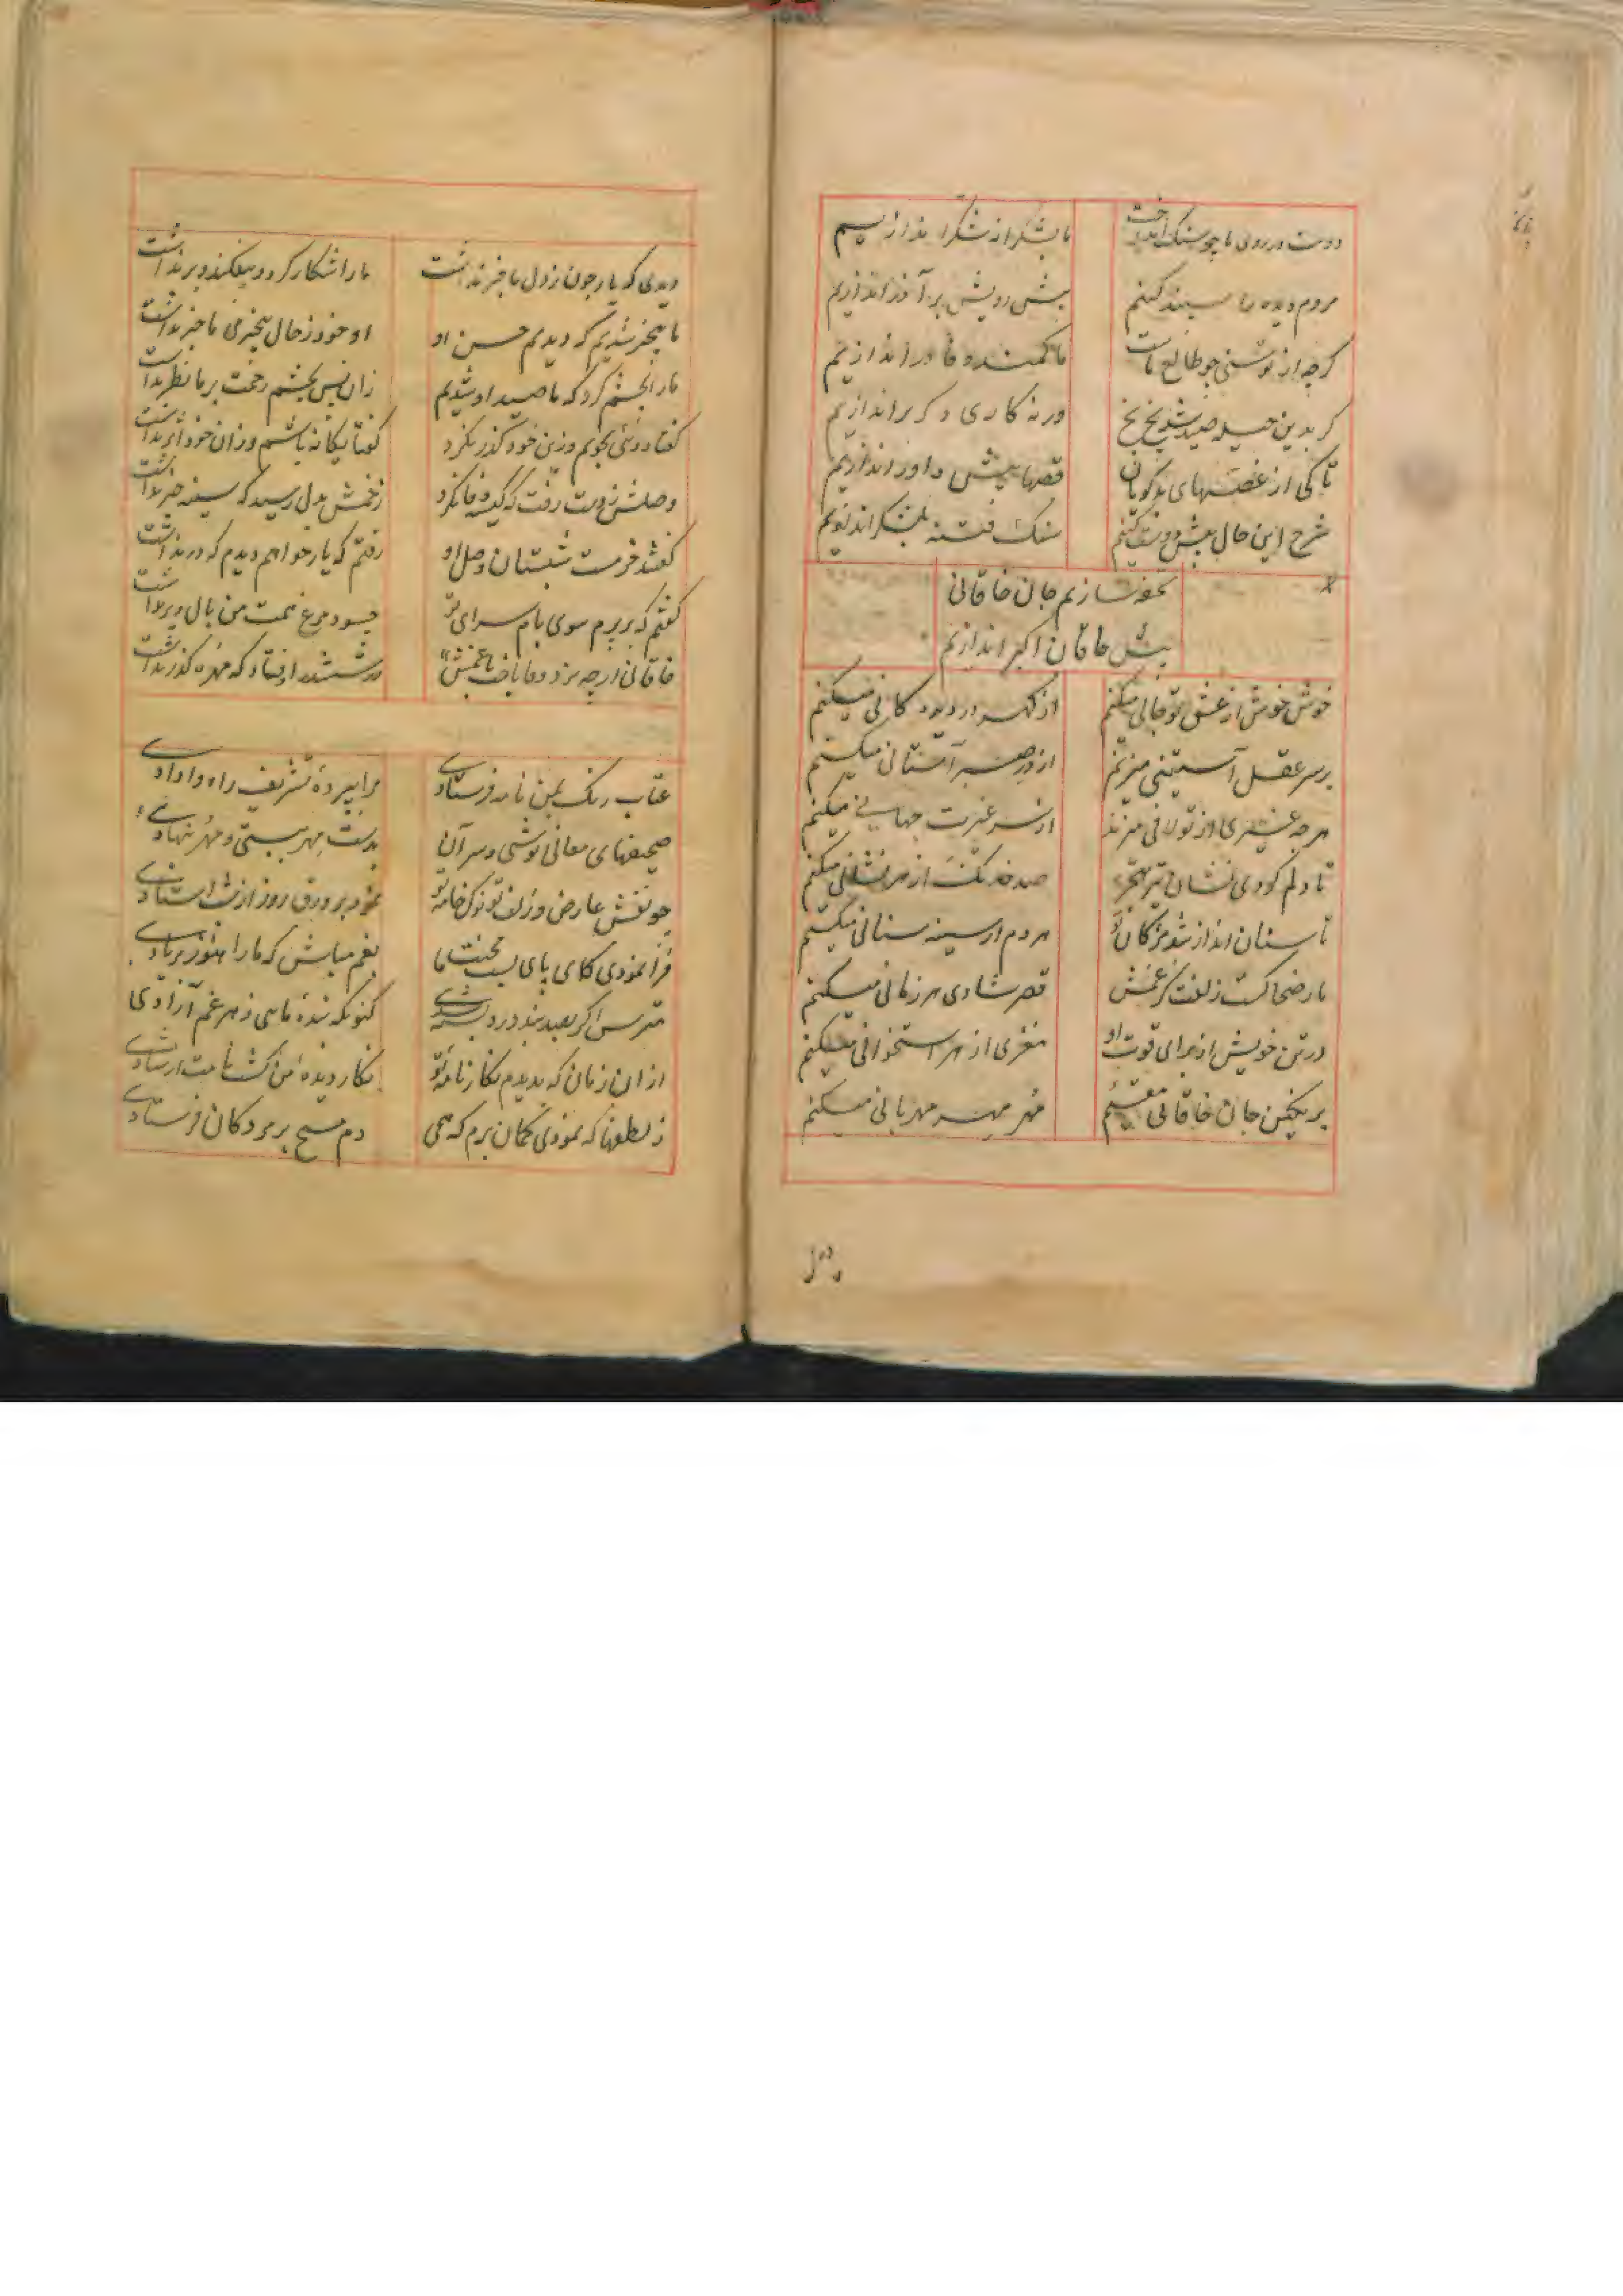 دوست در روی ما چو سنک انداخت
ما بشکرانه شکر اندازیم
مردم دیده را سپند کنیم
پیش رویش بر آذر اندازیم
کرچه از توسنی چو طالع ماست
ما کمند وفا در اندازیم
کر بدین حیله صید شد بخ بخ
ورنه کاری دکر بر اندازیم
تا کی از غصهای بدکویان
قصها پیش داور اندازیم
شرح این حال پیش دوست کنیم
سنک فتنه بلشکر اندازیم
تحفه سازیم جان خاقانی
پیش خاقان اکبر اندازیم
خوش خوش از عشق تو جانی میکنم
از کهر در دیده کانی میکنم
بر سر عقل آستینی میزنم
از در صبر آستانی میکنم
هرچه عشری از تو لافی میزند
از سر غیرت جهانی میکنم
تا دلم کردی نشان تیر هجر
صد خدنک از هر نشانی میکنم
تا سنان انداز شد مژکان تو
هر دم از سینه سنانی میکنم
مار ضحاکست زلفت کز غمش
قصر شادی هر زمانی میکنم
در تن خویش از برای قوت او
مغزی از هر استخوانی میکنم
بر نکین جان خاقانی مقیم
مهر مهر مهربانی میکنم
دیدی
دیدی که یار چون ز دل ما خبر نداشت
ما را شکار کرد و بیفکند و بر نداشت
ما بیخبر شدیم که دیدیم حسن او
او خود ز حال بیخبری ما خبر نداشت
ما را بچشم کرد که ما صید او شدیم
زان پس بچشم رحمت بر ما نظر نداشت
کفتا دوستی بجویم وزین خود کذر نکرد
کفتا یکانه باشم وزان خود اثر نداشت
وصلش ز دست رفت که کیسه وفا نکرد
زخمش بدل رسید که سینه سپر نداشت
کفتند خرمست شبستان وصل او
رفتم که بار خواهم دیدم که در نداشت
کفتم که بر پرم سوی بام سرای تو
چه سود مرغ همت من بال و پر نداشت
خاقانی ارچه نرد وفا باخت با غمش
در ششدر اوفتاد که مهره کذر نداشت
عتاب رنک بمن نامه فرستادی
مرا بپرده تشریف راه وا دادی
صحیفهای معانی نوشتی و سر آن
بدست مهر ببستی و مهر بنهادی
چو نقش عارض و زلف تو نوک خامه تو
نمود بر ورق روز از شب استادی
فرا نمودی کای پای بست محنت ما
بغم مباش که ما را هنوز بر یادی
مترس اکر بصد بند درد بسته شدی
کنونکه بنده مائی ز هر غم آزادی
از ان زمان که بدیدم نکار نامه تو
نکار دیده من کشت نامت از شادی
ز لطفها که نمودی کمان برم که همی
دم مسیح بر مردکان فرستادی